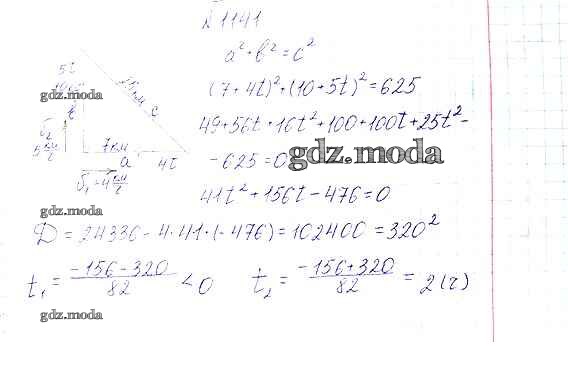 № 1141
a² + b² = c²
(7+4t)² + (10+5t)² = 625
49+56t+16t²+100+100t+25t² -
- 625 = 0
41t² + 156t - 476 = 0
D = 24336 - 4·41·(-476) = 102400 = 320²
t₁ = (-156-320)/82 < 0   t₂ = (-156+320)/82 = 2(ч)
5t
gdz.moda
c
7км
a
4t
gdz.moda
gdz.moda
gdz.moda